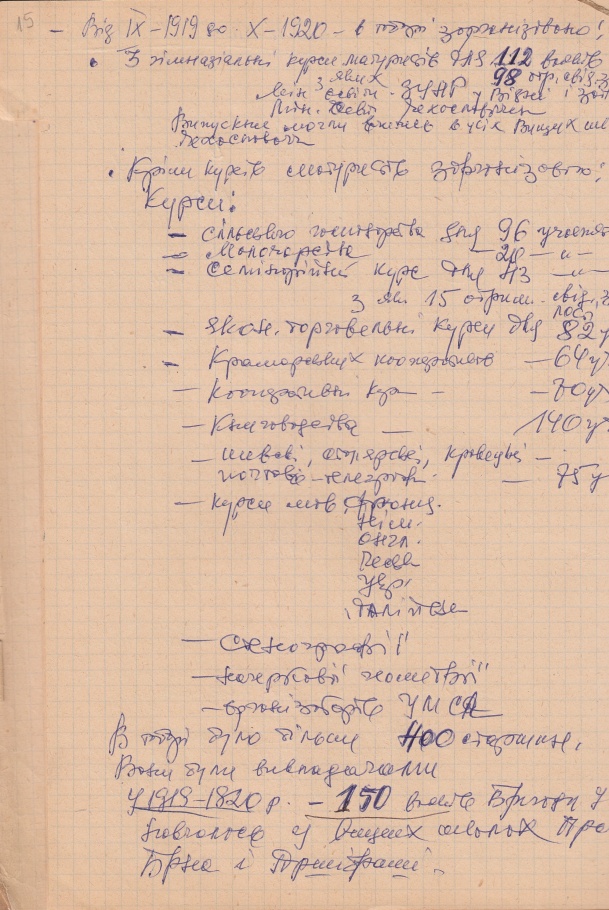 15
– Від IX-1919 до X-1920 – в таборі зорганізовано:
• 3 гімназіальні курси матуристів для 112 вояків
з яких 98 отр. свід. з
Мін. освіти ЗУНР у Відні і
Мін. Осві Чехословач
Випускники могли вчитись в усіх Вищих
Чехословач
• Крім курсів матуристів зорганізовано:
Курси:
– сільського господарства для 96 учасн
– Молочарства – 20 – " –
– Семінарійний курс для 43 – " –
з як 15 отрим. свід. з
– Экон. торговельні курси для 82 у
– Крамарських кооператив – 64 у
– Кооперативн кур – – 70 уч
– Книговодства – 140 у
– шевські, столярські, кравецькі –
почтово-телеграф. – 75 у
– курси мов, франц.
нім.
англ.
Ческа
Укр.
Італійська
– Стенографії
– начеркової геометрії
– організаторів УМСА
В таборі було більше 400 старшин.
Вони були викладачами
У 1919–1920 р. – 150 вояків Бригади У
навчалось у вищих школах Пра
Брна і Пршібрамі.